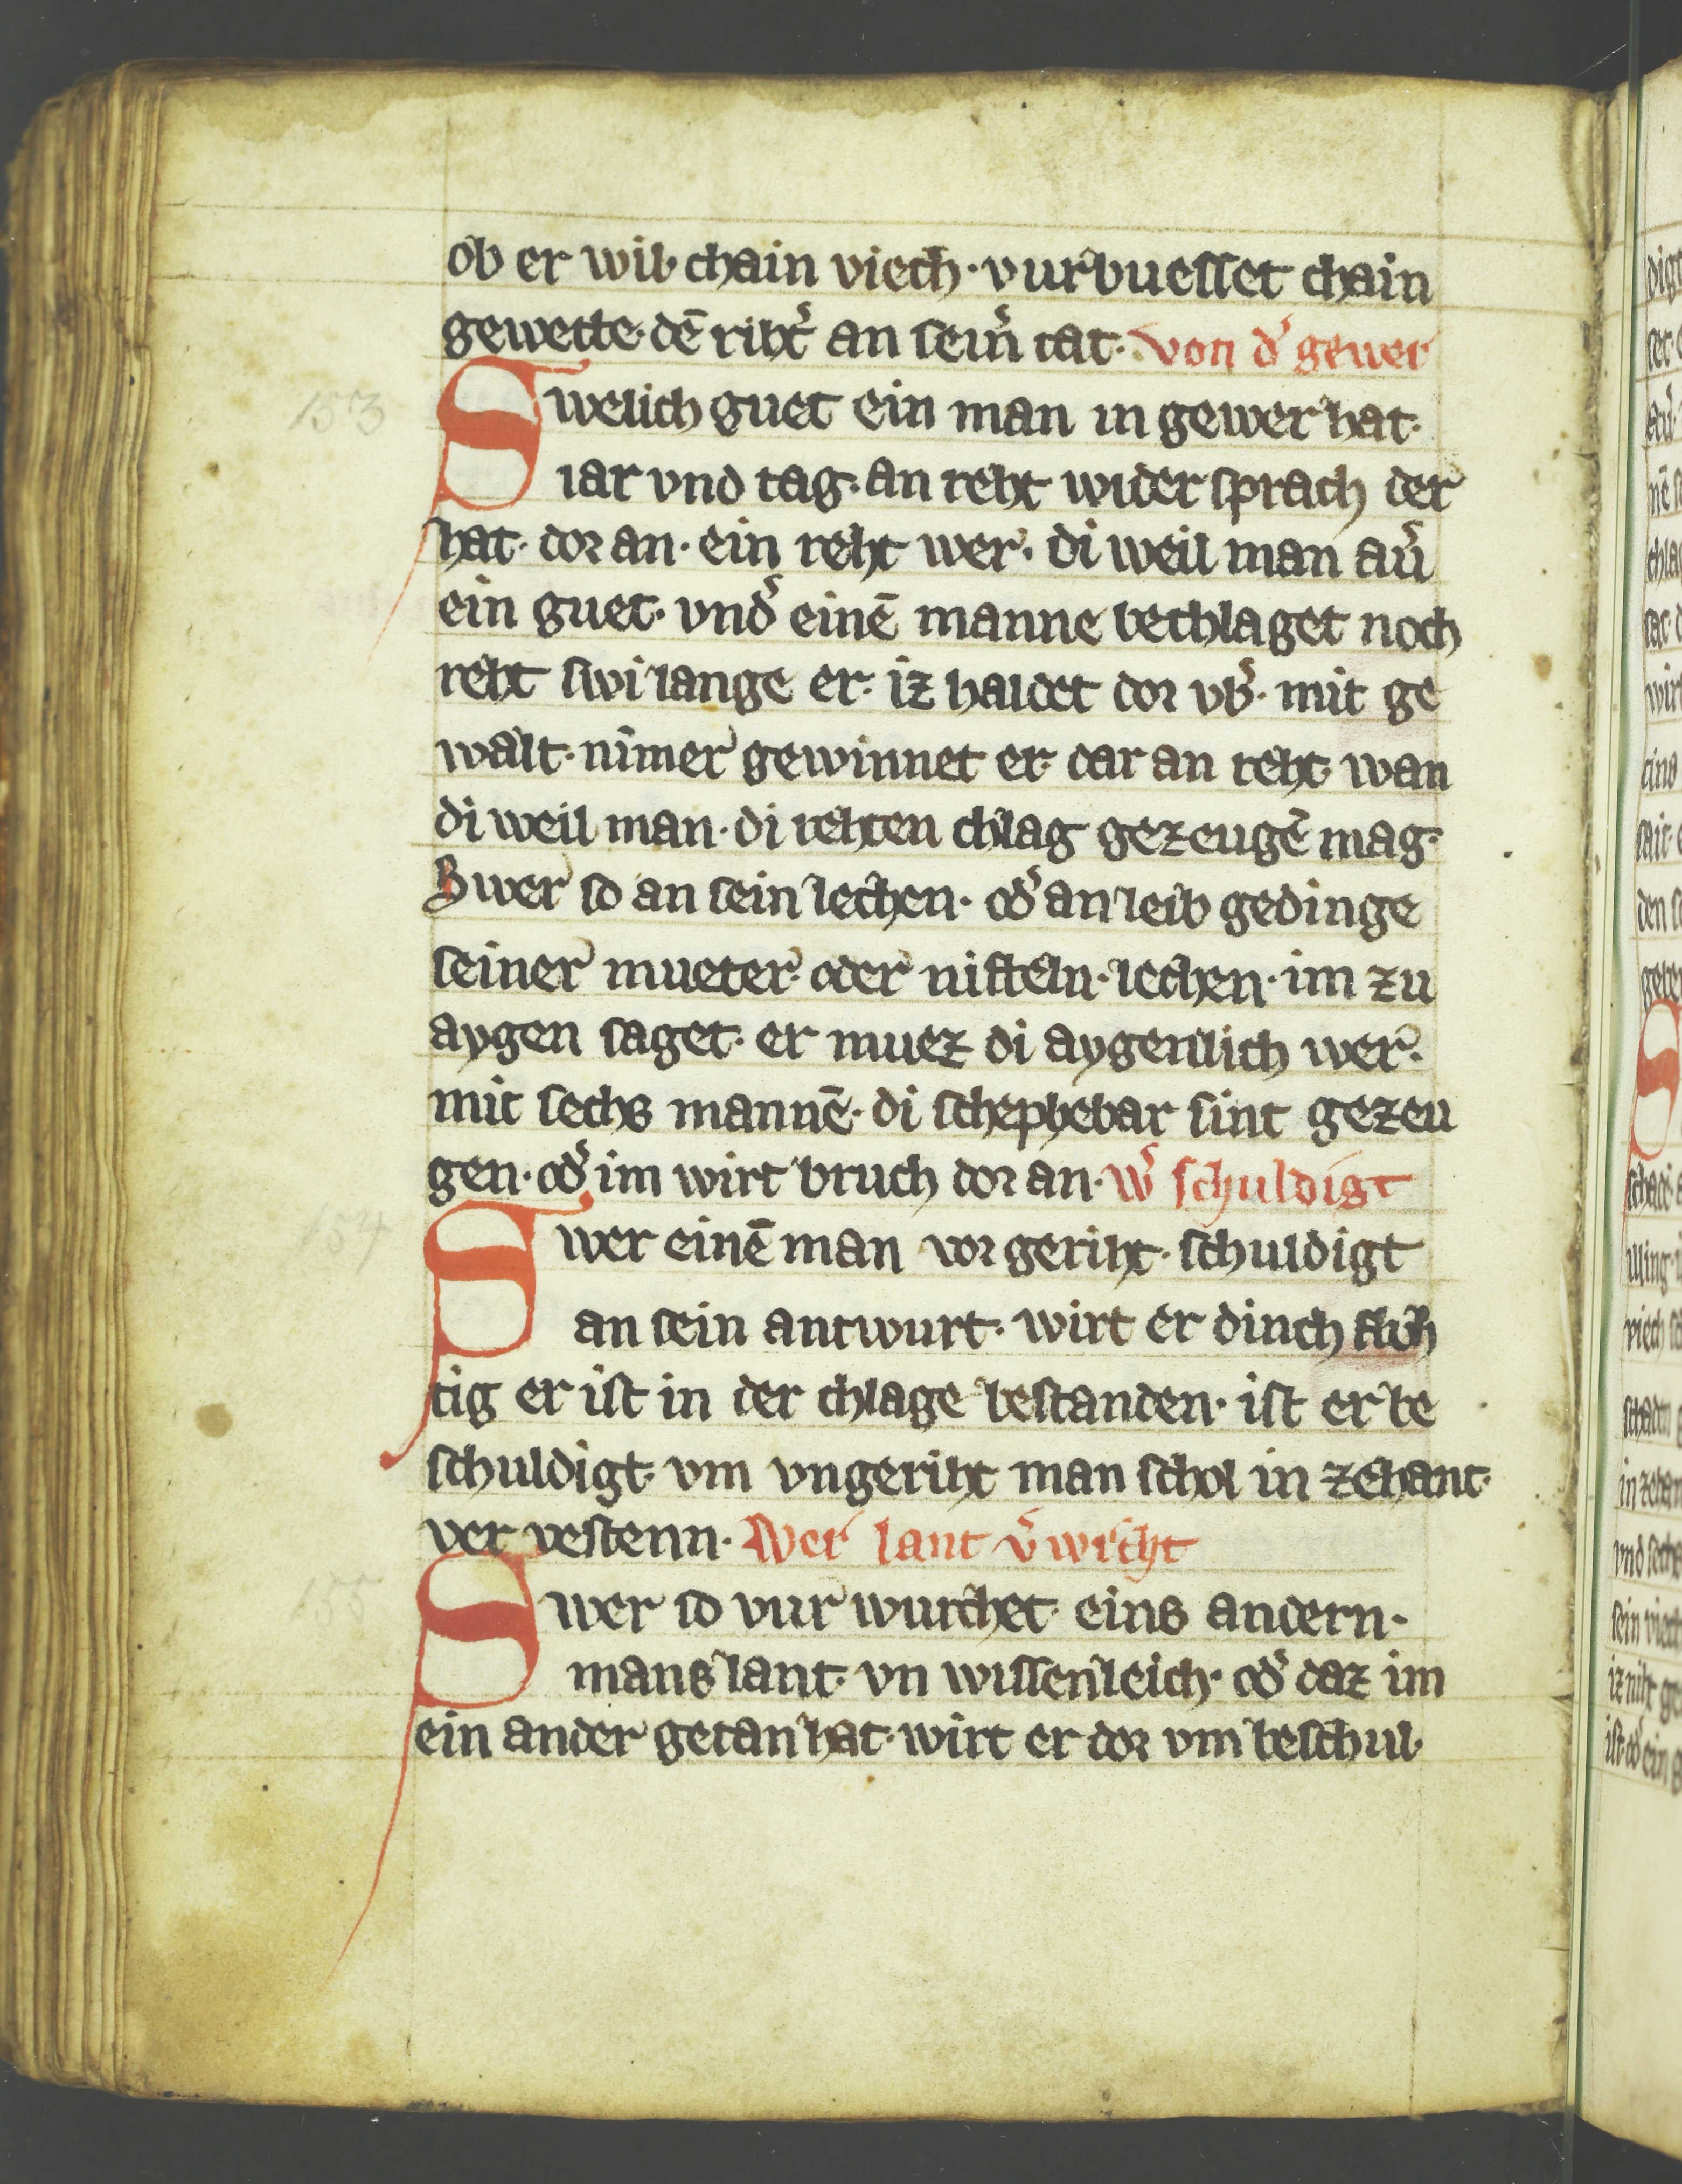 ob er wil· chain viech· vurbuesset chain
gewette· dē riht͛ an sein͛ tat· von d͛ gewer
153 Swelich guet ein man in gewer hat·
iar vnd tag· an reht wider sprach der
hat· dor an· ein reht wer· di weil man au͛
ein guet· vnd͛ einē manne bechlaget noch
reht swi lange er· iz haldet dor vb͛· mit ge
walt· nīmer gewinnet er· dar an reht· wan
di weil man· di rehten chlag gezeugē mag·
Swer so an sein lechen· od͛ an leib gedinge
seiner mueter· oder nifteln· lechen· im zu
aygen saget· er muez di aygenlich wer·
mit sechs mannē· di schephebar sint gezeu
gen· od͛ im wirt bruch dor an· w͛ schuldigt
154 Swer einē man vor geriht· schuldigt
an sein antwurt· wirt er dinch fluh
tig er ist in der chlage bestanden· ist er be
schuldigt· vm vngeriht man schol in zehant·
ver vestenn· Wer lant v͛wrcht
155 Swer so vur wurchet· eins andern·
mans lant· vn wissenleich· od͛ daz im
ein ander getan hat· wirt er dor vm beschul